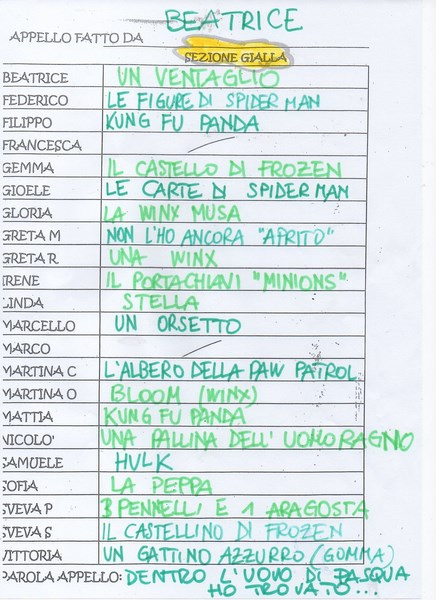 BEATRICE
APPELLO FATTO DA
SEZIONE GIALLA
BEATRICE UN VENTAGLIO
FEDERICO LE FIGURE DI SPIDER MAN
FILIPPO KUNG FU PANDA
FRANCESCA
GEMMA IL CASTELLO DI FROZEN
GIOELE LE CARTE DI SPIDERMAN
GLORIA LA WINX MUSA
GRETA M NON L'HO ANCORA "APRITO"
GRETA R UNA WINX
IRENE IL PORTACHIAVI "MINIONS"
LINDA STELLA
MARCELLO UN ORSETTO
MARCO
MARTINA C L'ALBERO DELLA PAW PATROL
MARTINA O BLOOM (WINX)
MATTIA KUNG FU PANDA
NICOLO' UNA PALLINA DELL'UOMO RAGNO
SAMUELE HULK
SOFIA LA PEPPA
SVEVA P 3 PENNELLI E 1 ARAGOSTA
SVEVA S IL CASTELLINO DI FROZEN
VITTORIA UN GATTINO AZZURRO (GOMMA)
PAROLA APPELLO: DENTRO L'UOVO DI PASQUA
HO TROVATO...